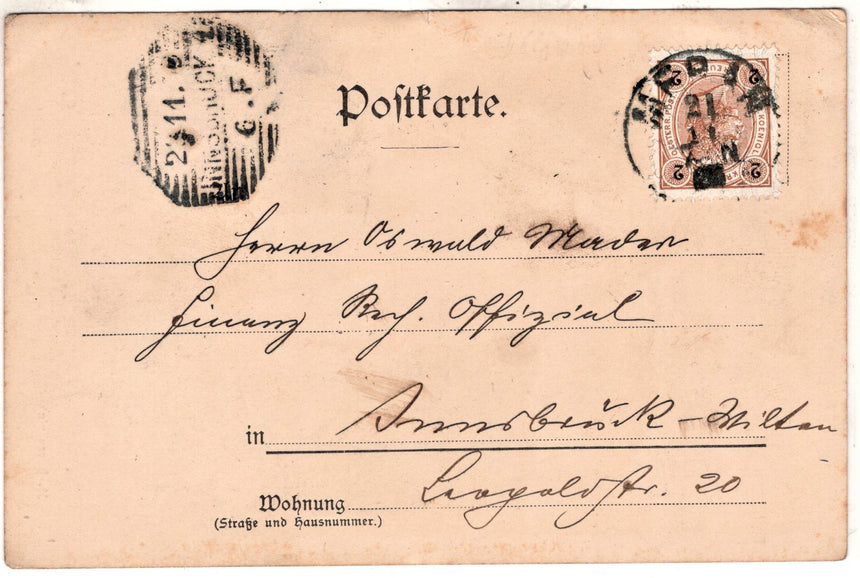 Postkarte.
INNSBRUCK
6. F
MERAN
21
11
2
2
2
2
Herrn Oswald Mader
Finanz Rech. Offizial
in Innsbruck-Wilten
Wohnung Leopoldstr. 20
(Straße und Hausnummer.)